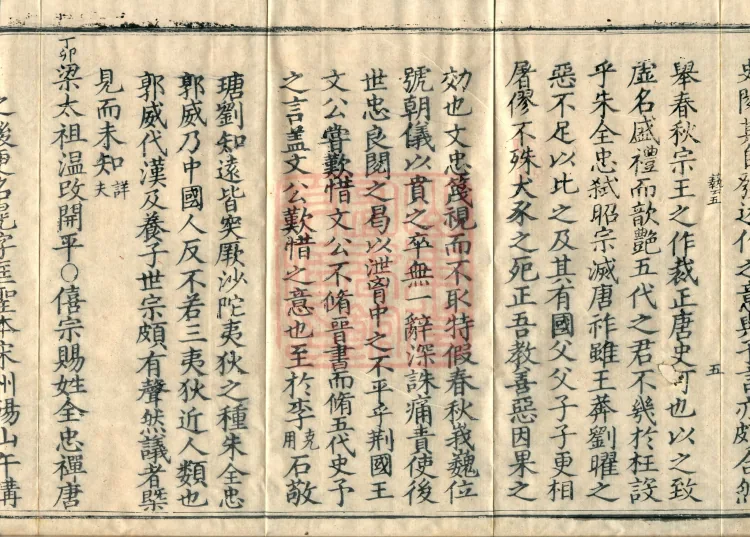 藝五
五
舉春秋宗王之作裁正唐史可也以之致
虛名盛典禮而歆艷五代之君不幾於枉設
乎朱全忠弒昭宗滅唐祚雖王莽劉曜之
惡不足以比之及其有國父父子子更相
屠僇不殊犬豕之死正吾教善惡因果之
効也文忠蔑視而不取特假春秋峩巍位
號朝儀以賁之卒無一辭深誅痛責使後
世忠良閱之曷以泄胷中之不平乎荆國王
文公甞歎惜文公不脩晉書而脩五代史予
之言盖文公歎惜之意也至於李克用石敬
瑭劉知遠皆突厥沙陀夷狄之種朱全忠
郭威乃中國人反不若三夷狄近人類也
郭威代漢及養子世宗頗有聲然議者槩
見而未知詳夫
丁卯梁太祖温改開平○僖宗賜姓全忠禪唐